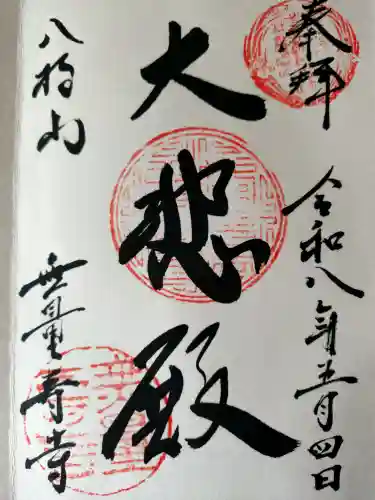 奉拝
令和八年五月四日
大悲殿
八捨山
無量寿寺